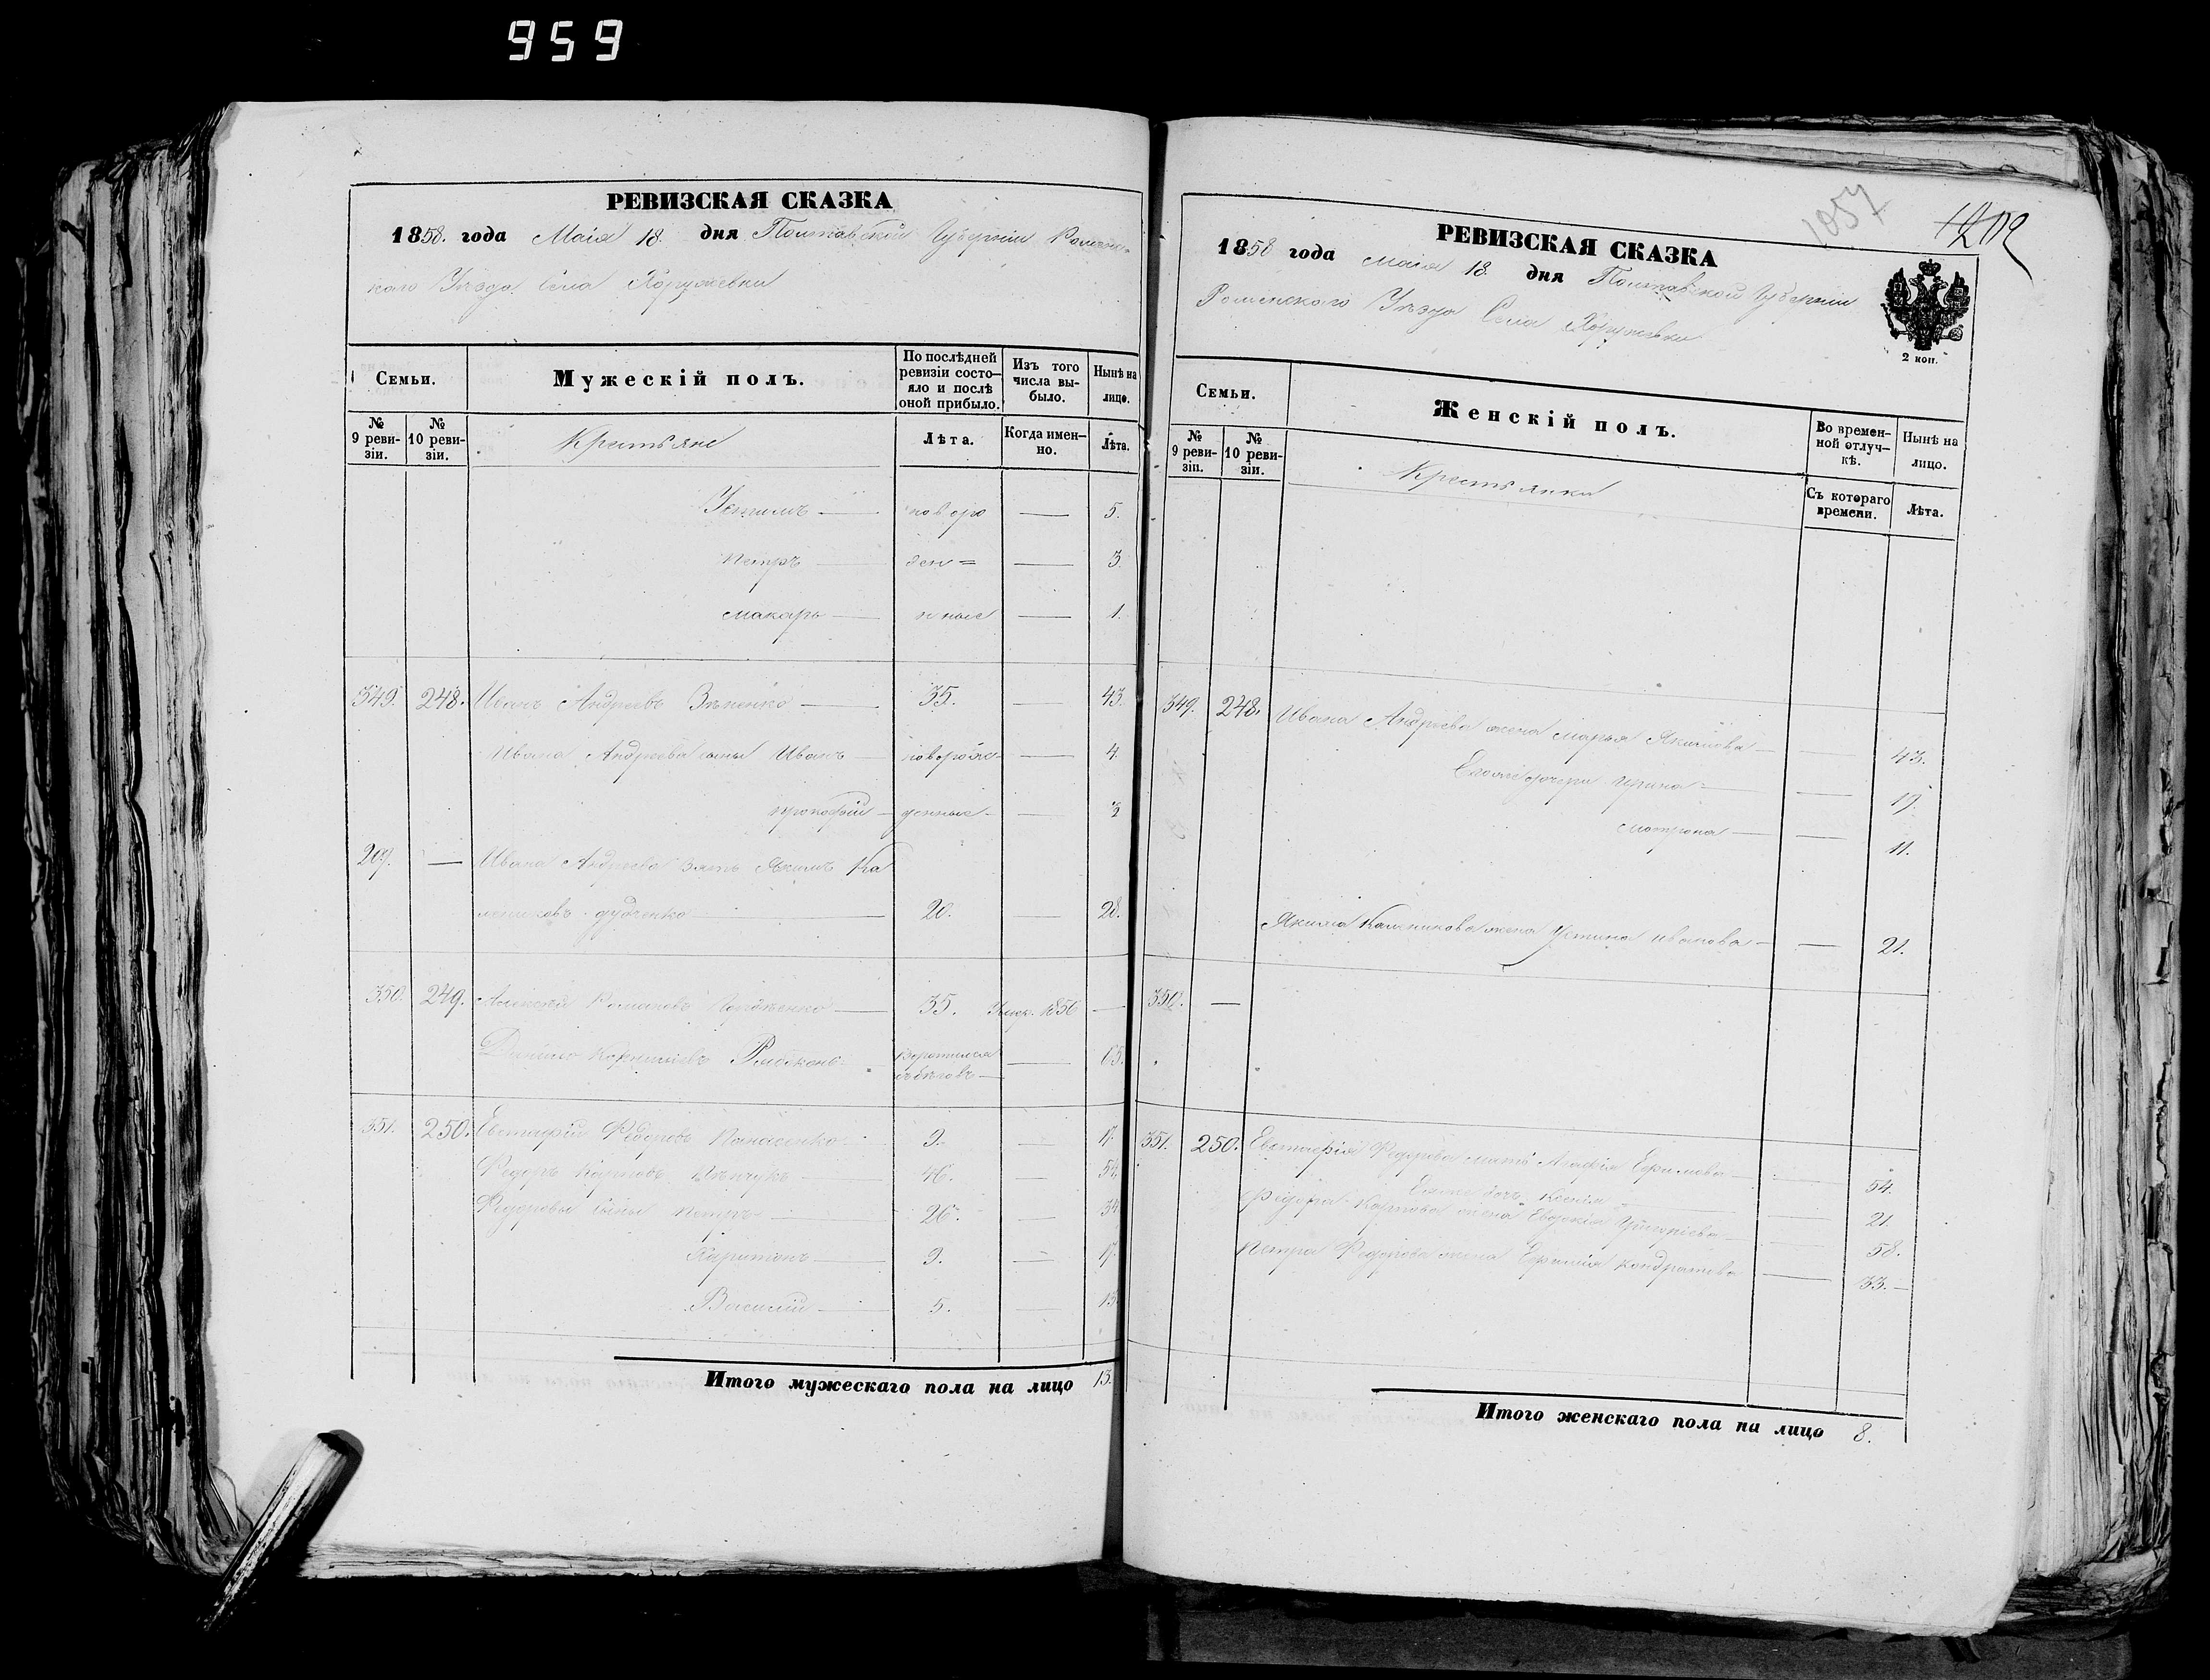 959
РЕВИЗСКАЯ СКАЗКА
1858. года Маія 18. дня Полтавской Губерніи Ромен-
каго Уѣзда Села Хоружевки
Семьи.
Мужескій полъ.
По послѣдней ревизіи состояло и послѣ оной прибыло.
Изъ того числа выбыло.
Нынѣ на лицо.
№ 9 ревизіи.
№ 10 ревизіи.
Крестьяне
Лѣта.
Когда именно.
Лѣта.
Устимъ — новоро — 5.
Петръ — ден= — 3.
Макаръ — ные — 1.
349. 248. Иванъ Андреевъ — 35. — 43.
Ивана Андреева сыны Иванъ — новорож- — 4.
Прокофій — денные — 2
207. — Ивана Андреева зять Якимъ Ка
лениковъ Дудченко — 20. — 28.
350. 249. Романовъ — 35. 1856 —
Данило — воротился — 65.
съ бѣговъ —
351. 250. Евстафій Федоровъ Панасенко — 9. — 17.
Федоръ Карповъ — 46. — 54.
Федоровы сыны Петръ — 26. — 34
Харитонъ — 9. — 17
Василій — 5. — 13
Итого мужескаго пола на лицо 13.
1057
1202
РЕВИЗСКАЯ СКАЗКА
1858 года Маія 18. дня Полтавской Губерніи
Роменскаго Уѣзда Села Хоружевки
2 коп.
Семьи.
Женскій полъ.
Во временной отлучкѣ.
Нынѣ на лицо.
№ 9 ревизіи.
№ 10 ревизіи.
Крестьянки
Съ котораго времени.
Лѣта.
349. 248. Ивана Андреева жена Марья Якимова — — 43.
дочери Ирина — — 19.
Мотрона — — 11.
Якима Каленикова жена Устина Иванова — — 21.
350. —
351. 250. Евстафія Федорова мать Агафія Ефимова — — 54.
дочь Ксенія — — 21.
Федора Карпова жена Евдокія Григоріева — — 58.
Петра Федорова жена Кондратова — 33.—
Итого женскаго пола на лицо 8.